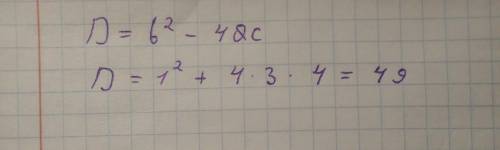 D = b² - 4ac
D = 1² + 4 · 3 · 4 = 49